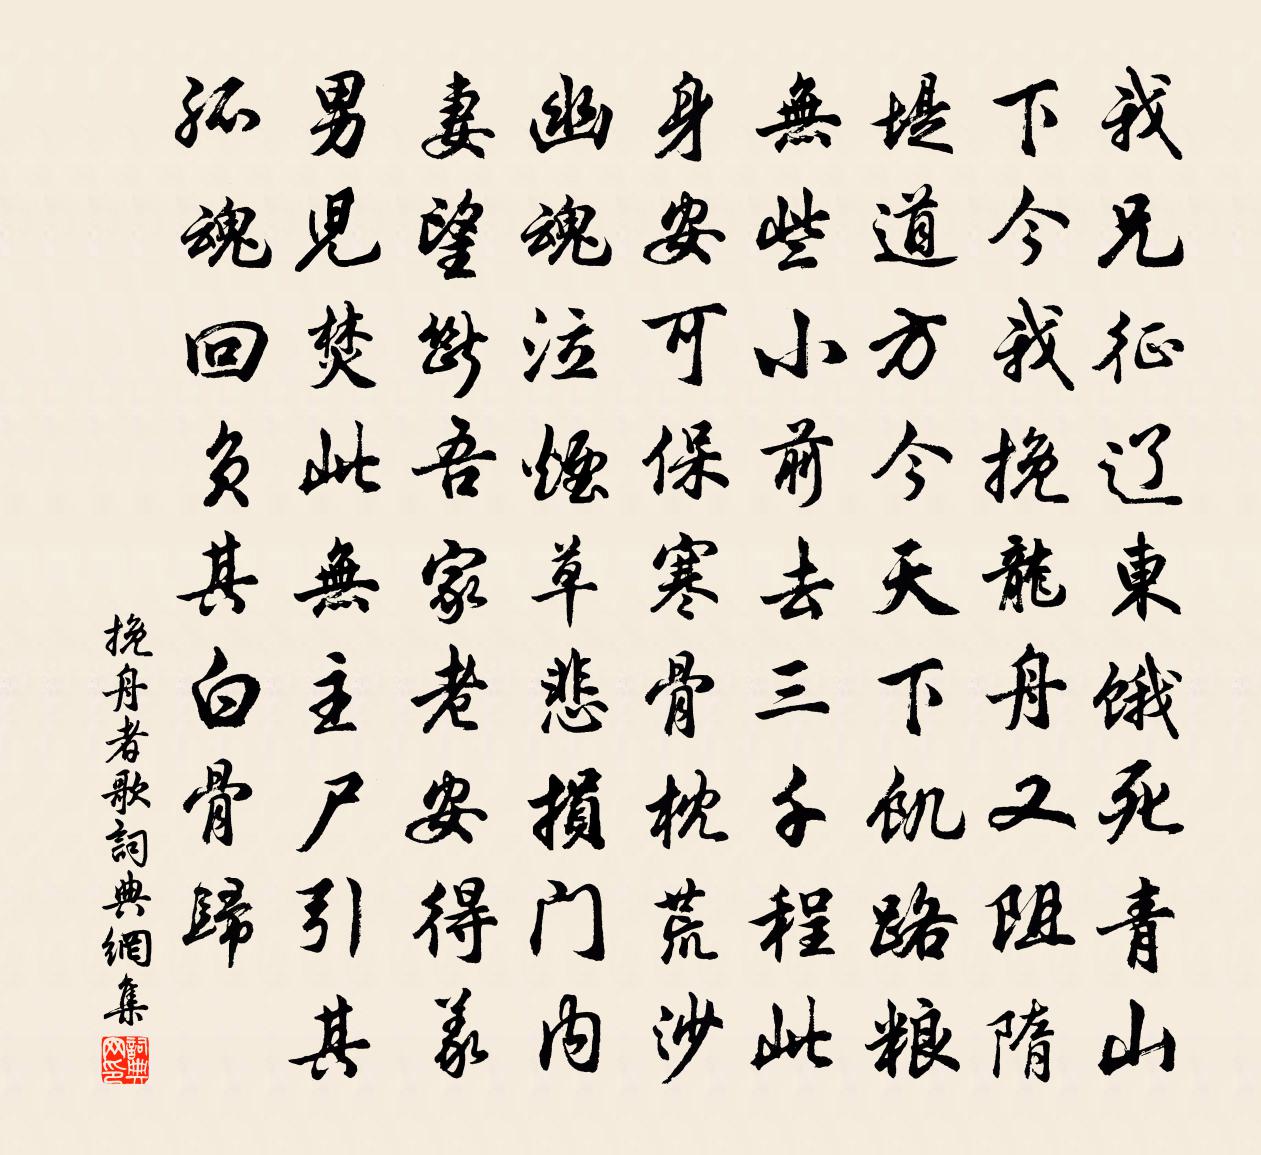 我兄征辽東餓死青山
下今我挽龍舟又阻隋
堤道方今天下飢路粮
無些小前去三千程此
身安可保寒骨枕荒沙
幽魂泣煙草悲損门内
妻望斷吾家老安得義
男児焚此無主尸引其
孤魂回負其白骨歸
挽舟者歌詞典網集
詞典网